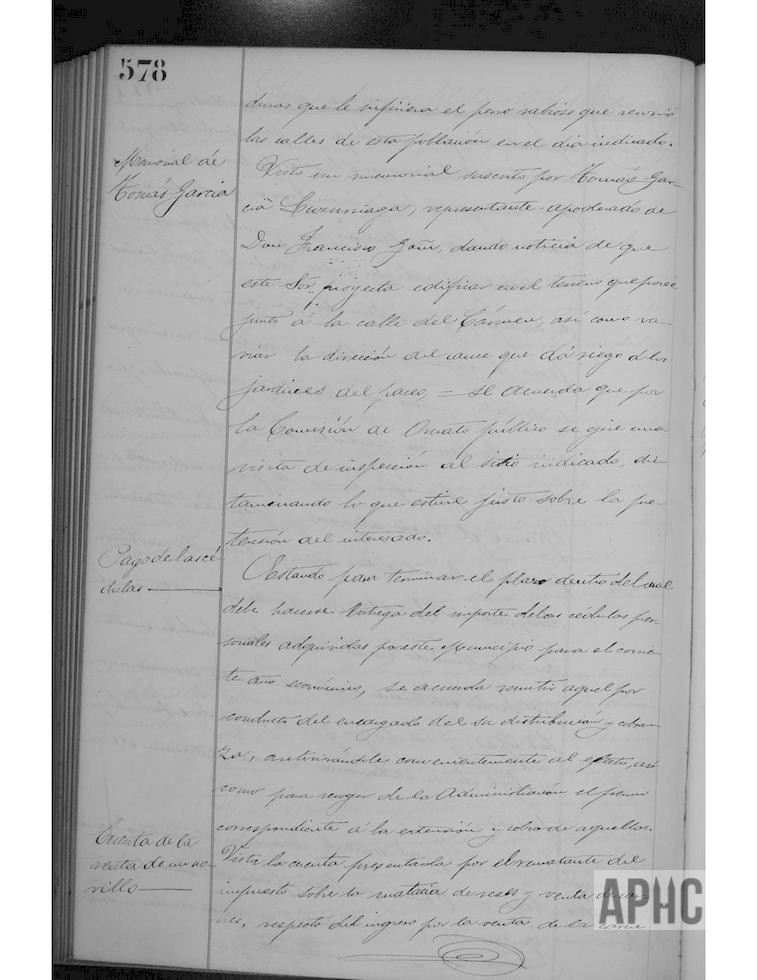 578
duras que le infiriera el perro rabioso que recorrió
las calles de esta población en el dia indicado.
Memorial de
Tomás Garcia
Visto un memorial suscrito por Tomás Gar-
cia representante apoderado de
Don Francisco Goñi, dando noticia de que
este Sor. proyecta edificar en el terreno que posee
junto á la calle del Cármen, así como va-
riar la dirección del cauce que dá riego á los
jardines del paseo, = se acuerda que por
la Comisión de Ornato público se gire una
visita de inspección al sitio indicado, dic-
taminando lo que estime justo sobre la pre-
tensión del interesado.
Pago de las cé-
dulas
Estando para terminar el plazo dentro del cual
debe hacerse entrega del importe de las cédulas per-
sonales adquiridas por este Municipio para el corrien-
te año económico, se acuerda remitir aquel por
conducto del encargado del su distribución y cobran-
za, autorizándole convenientemente al efecto, así
como para recoger de la Administración el premio
correspondiente á la extensión y cobro de aquellas.
Cuenta de la
venta de un no-
villo
Vista la cuenta presentada por el rematante del
impuesto sobre la matacia de reses y venta de car-
nes, respecto del ingreso por la venta de la carne
APHC